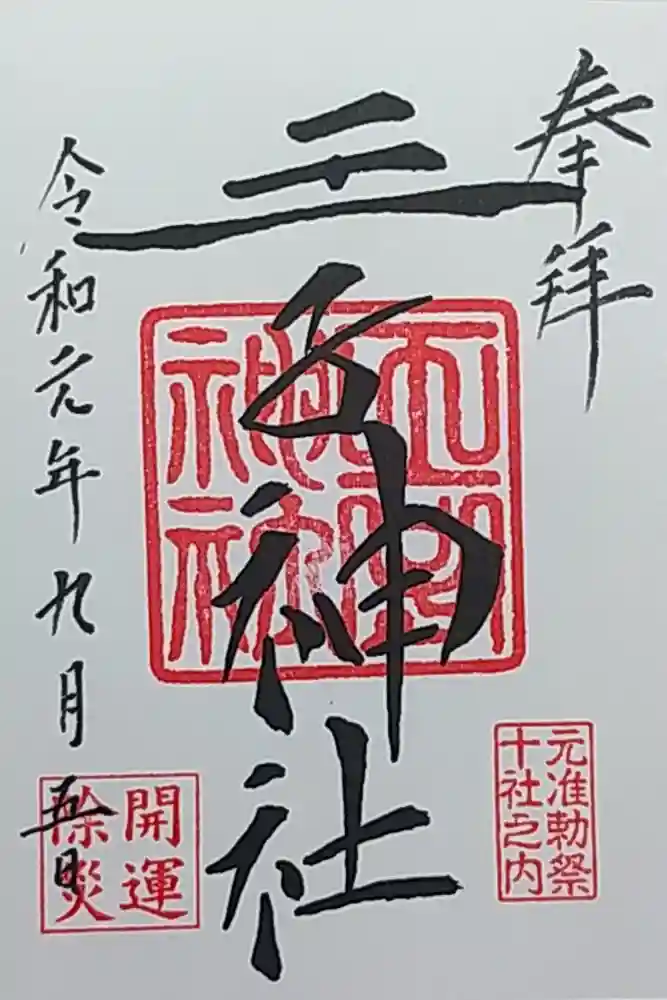 奉拝
王子神社
令和元年九月五日
元准勅祭
十社之内
開運
除災